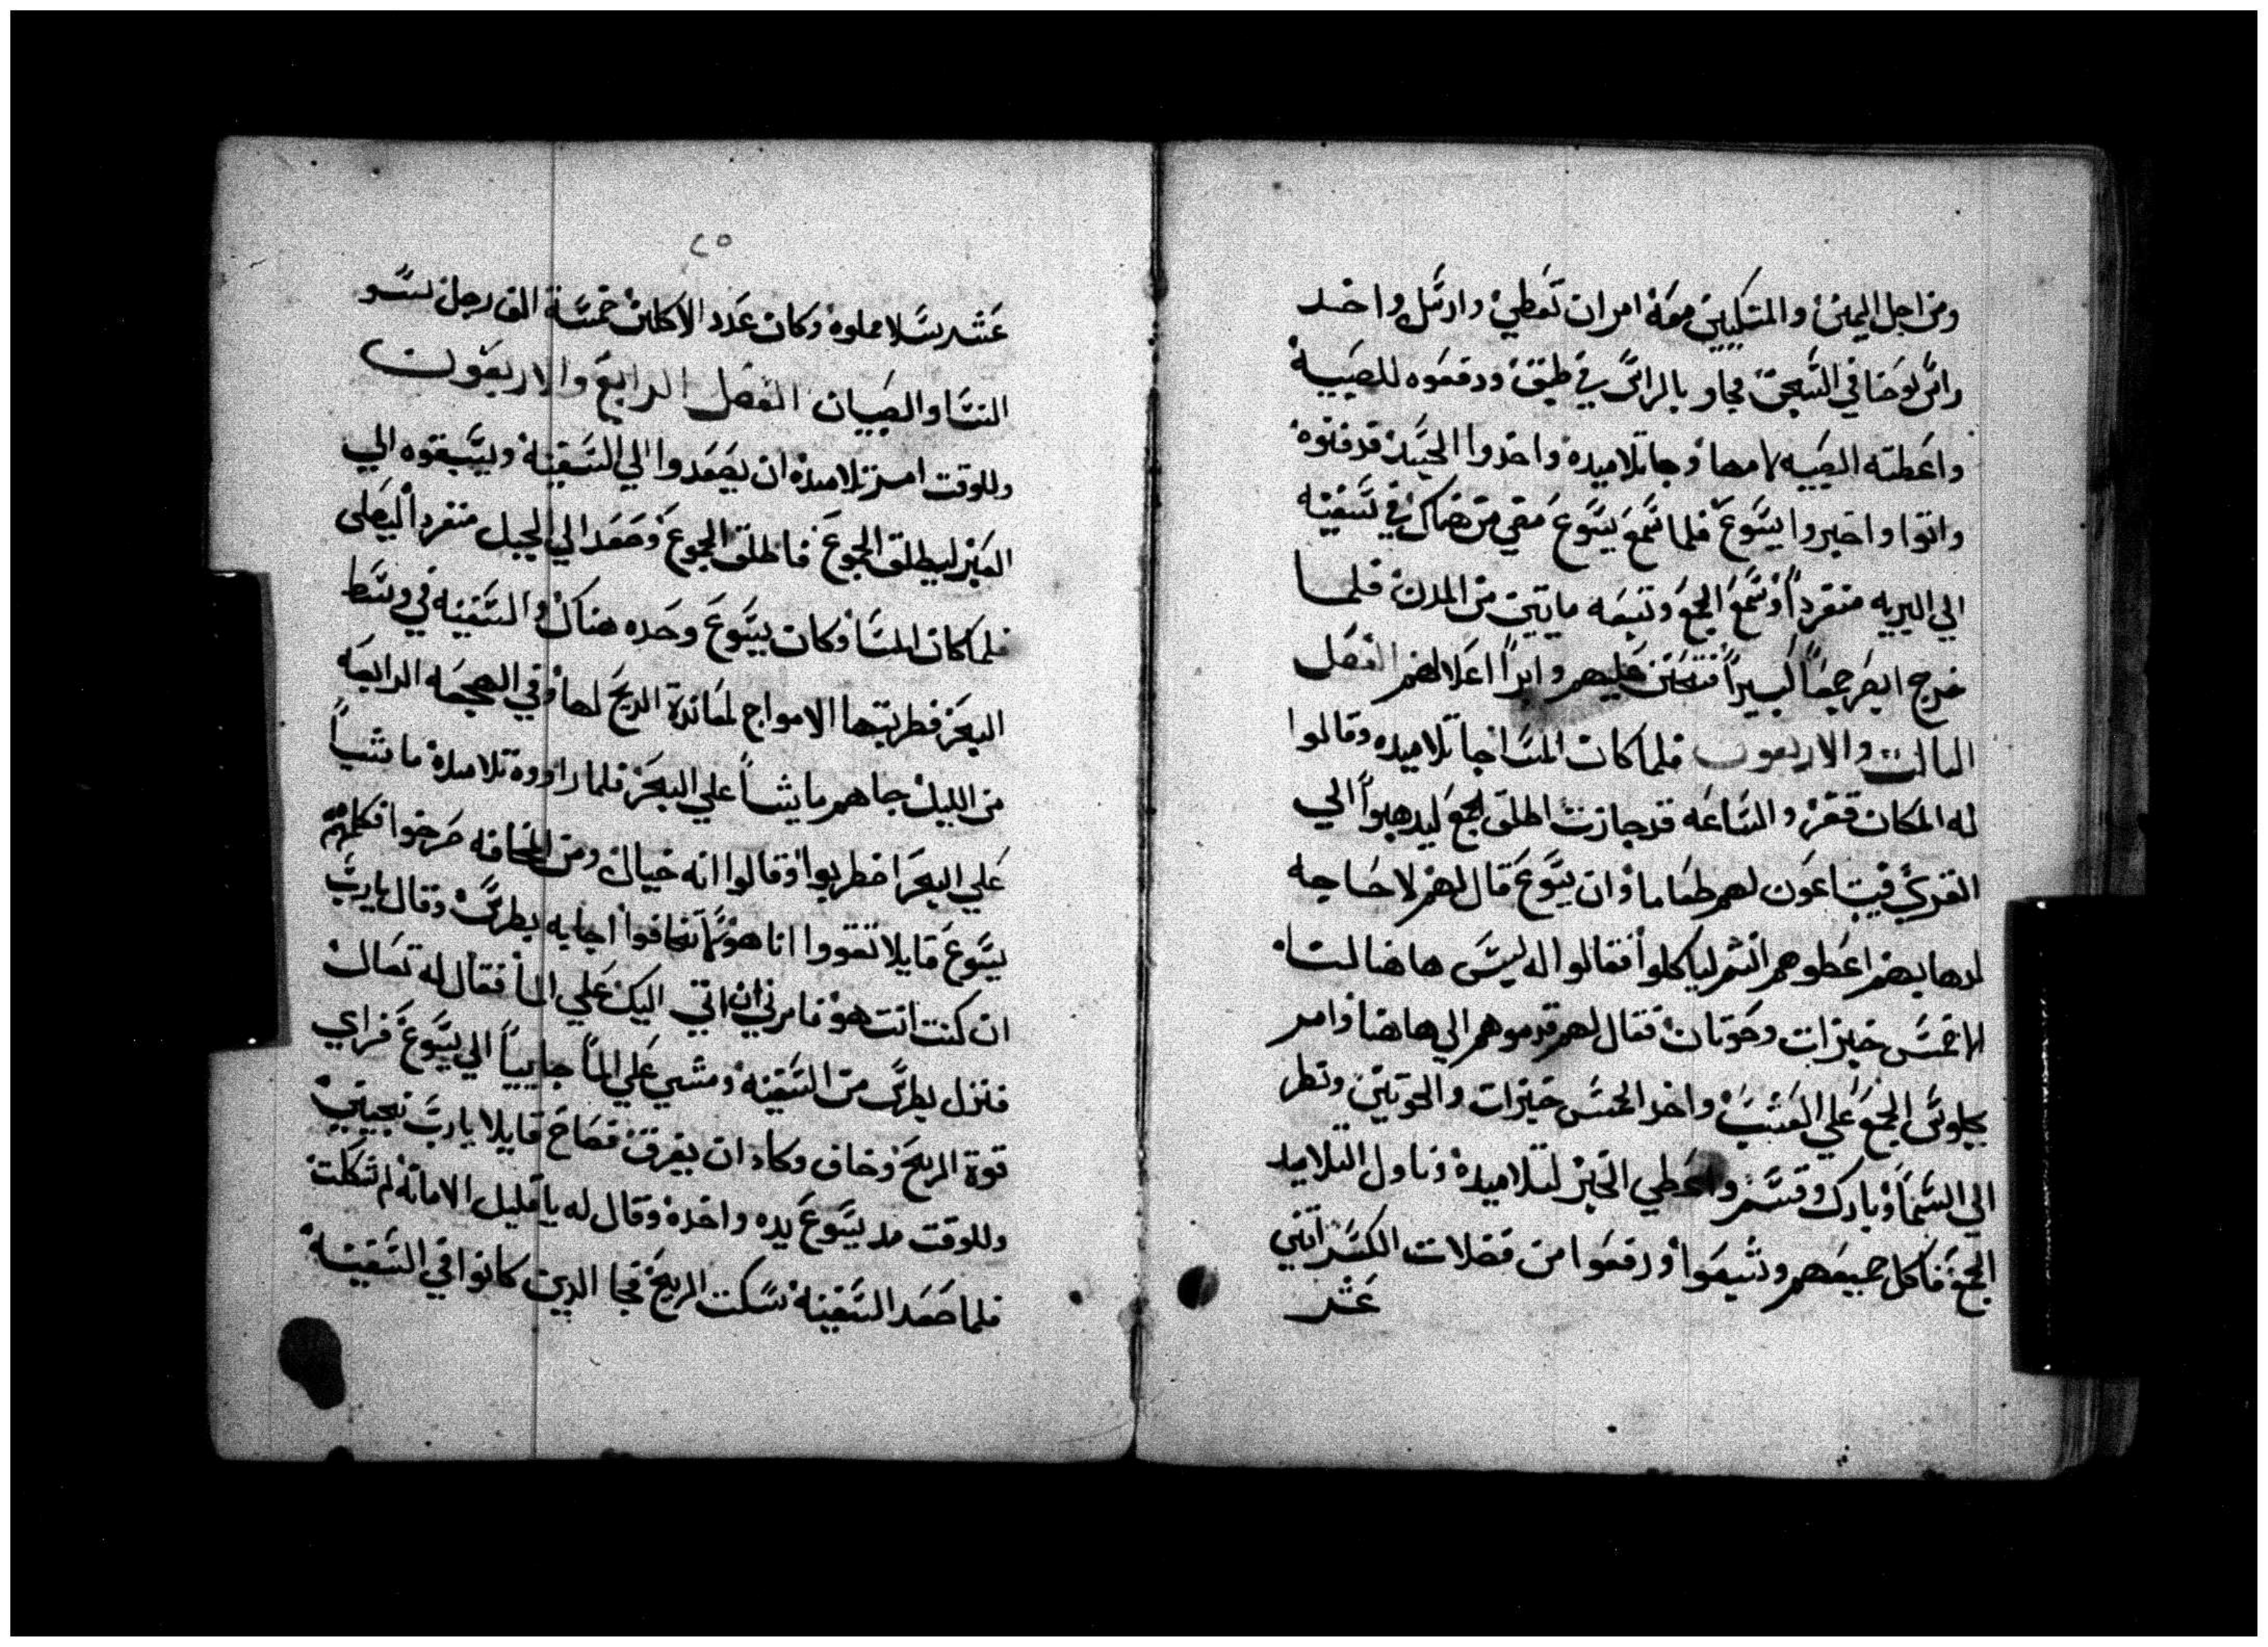 ومن اجل اليمين والمتكيين معه امر ان تعطي وارسل واخد
راس يوحنا في السجن فجاو بالراس في طبق ودفعوه للصبية
واعطته الصبيه لامها وجا تلاميده واخدوا الجسد فدفنوه
واتوا واخبروا يسوع فلما سمع يسوع مضي من هناك في سفينه
الي البريه منفرداً وسمع الجمع وتبعه ماييين من المدن فلما
خرج ابصر جمعاً كبيراً فتحنن عليهم وابراً اعلالهم الفصل
التالت والاربعون فلما كان المسا جا تلاميده وقالوا
له المكان قفر والساعه قد جازت اطلق الجمع ليدهبوا الي
القري فيبتاعون لهم طعاما وان يسوع قال لهم لا حاجه
لدهابهم اعطوهم انتم لياكلوا فقالوا له ليس هاهنا لنا
الا خمس خبزات وحوتان فقال لهم قدموهم الي هاهنا وامر
بجلوس الجمع علي العشب واخد الخمس خبزات والحوتين ونظر
الي السماً وبارك وقسم واعطي الخبز لتلاميده وناول التلاميد
الجمع فاكل جميعهم وشبعوا ورفعوا من فضلات الكسر اتني
عشر
٢٥
عشر سلا مملوه وكان عدد الاكلين خمسة الف رجل سو
النسا والصبيان الفصل الرابع والاربعون
وللوقت امر تلاميده ان يصعدوا الي السفينة ويسبقوه الي
العبر ليطلق الجموع فاطلق الجموع وصعد الي الجبل منفرداً ليصلي
فلما كان المسا وكان يسوع وحده هناك والسفينه في وسط
البحر فضربتها الامواج لمعاندة الريح لها وفي الهجعه الرابعه
من الليل جاهم ماشياً علي البحر فلما راووه تلاميده ماشياً
علي البحر اضطربوا وقالوا انه خيال ومن المخافه صرخوا فكلمهم
يسوع قايلا تقووا انا هو لا تخافوا اجابه بطرس وقال يا رب
ان كنت انت هو فامرني ان اتي اليك علي الما فقال له تعال
فنزل بطرس من السفينه ومشي علي الماً جايياً الي يسوع فراي
قوة الريح وخاف وكاد ان يغرق فصاح قايلا يا رب نجيني
وللوقت مد يسوع يده واخده وقال له يا قليل الامانه لم شككت
فلما صعد السفينه سكت الريح فجا الدين كانوا في السفينه